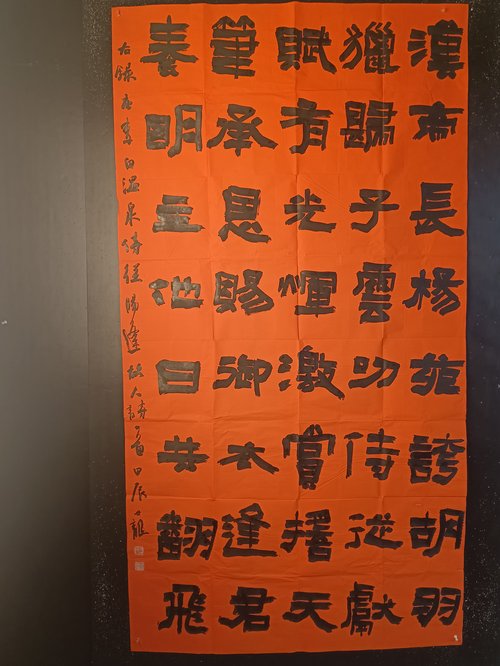 漢帝長楊苑誇胡羽
獵歸子雲叨侍從獻
賦有光煇激賞搖天
筆承恩賜御衣逢君
奏明主他日共翻飛
右錄唐李白温泉侍從歸逢故人詩一首甲辰